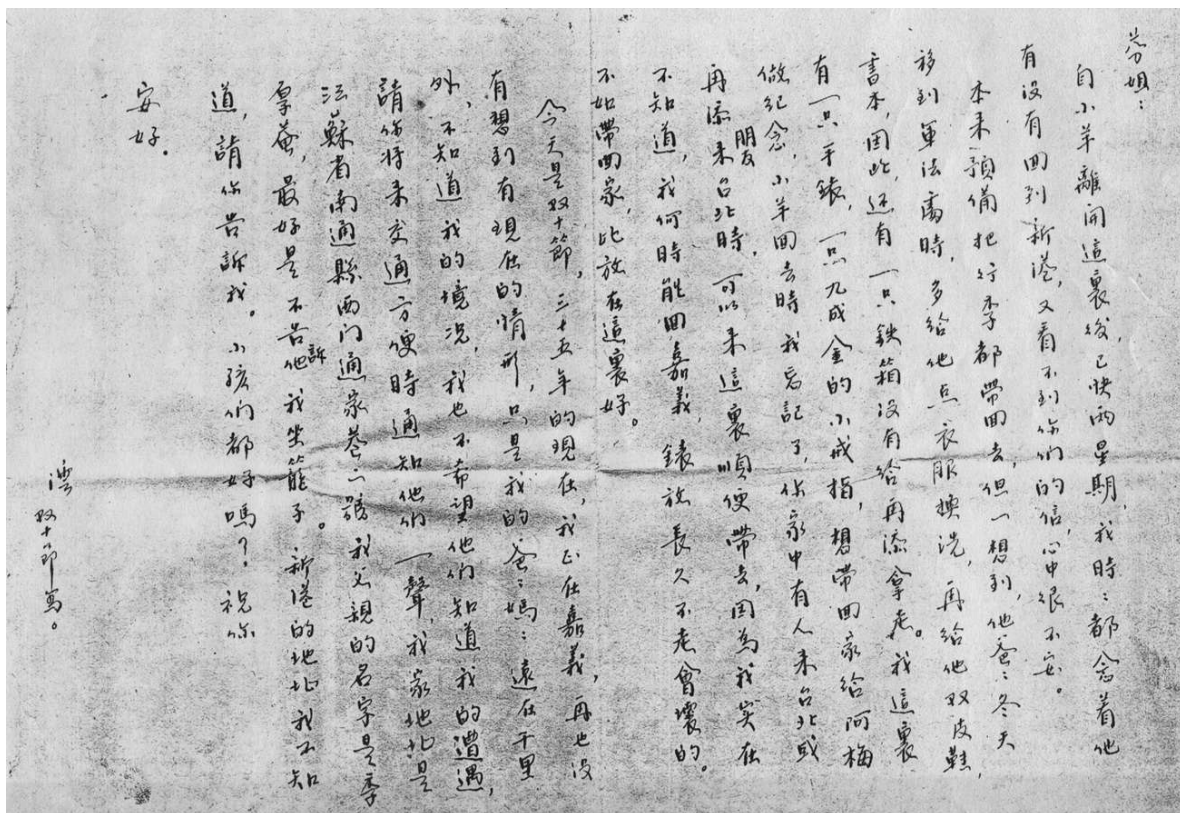 芬姐：
自小羊離開這裏後，已快兩星期，我時：都念着他
有沒有回到新港，又看不到你們的信，心中很不安。
本來預備把行李都帶回去，但一想到，他爸：冬天
移到軍法處時，多給他点衣服換洗，再給他双皮鞋，
書本，因此，还有一只鉄箱沒有給再添拿走。我這裏
有一只手錶，一只九成金的小戒指，想帶回家給阿梅
做紀念，小羊回去時我忘記了，你家中有人來台北或
再添朋友來台北時，可以來這裏順便帶去，因為我实在
不知道，我何時能回嘉義，錶放長久不走會壞的。
不如帶回家，比放在這裏好。
今天是双十節，三十五年的現在，我正在嘉義，再也沒
有想到有現在的情形，只是我的爸：媽：遠在千里
外，不知道我的境况，我也不希望他們知道我的遭遇，
請你将來交通方便時通知他們一聲，我家地址是
江蘇省南通縣西门通家巷六號。我父親的名字是季
厚菴，最好是不告訴他我坐籠子，新港的地址我不知
道，請你告訴我。小孩們都好嗎？祝你
安好。
澐
双十節寫。